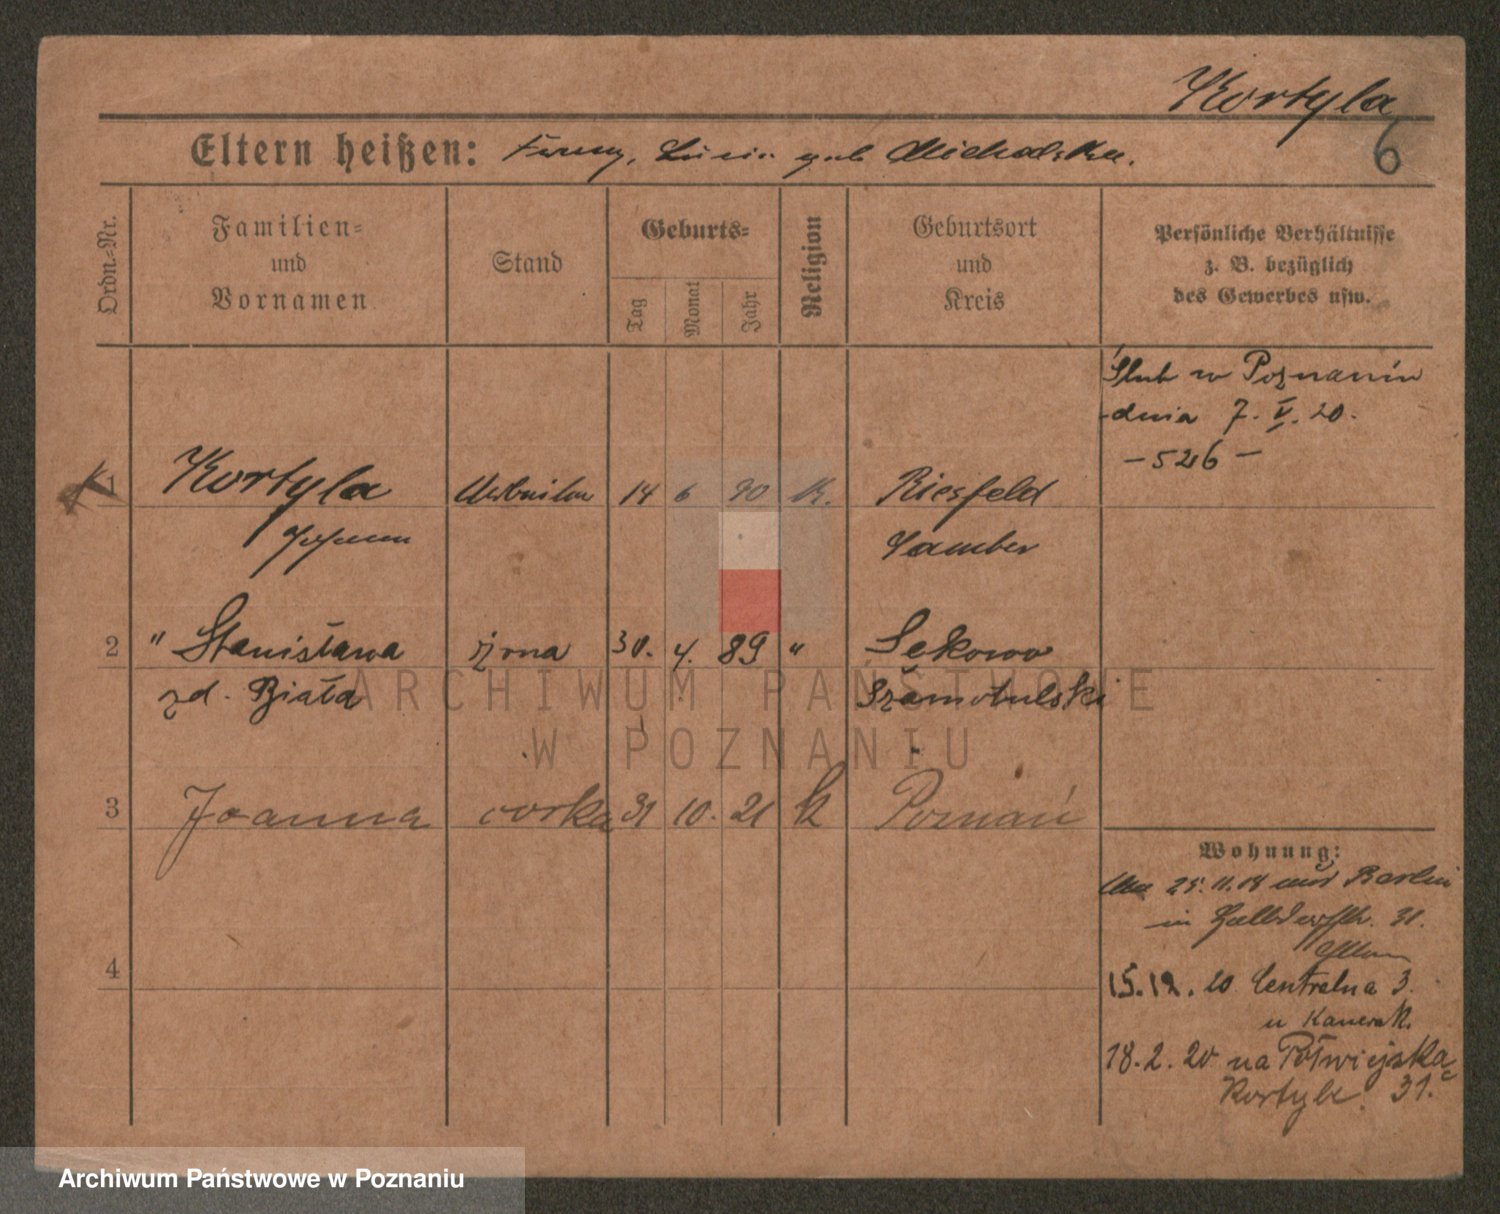 Kortyla
6
Eltern heißen: geb Michalska.
Ordn.-Nr.
Familien-
und
Vornamen
Stand
Geburts-
Tag
Monat
Jahr
Religion
Geburtsort
und
Kreis
Persönliche Verhältnisse
z. B. bezüglich
des Gewerbes usw.
Ślub w Poznaniu
dnia 7. V. 20.
- 526 -
1 Kortyla 14 6 90 K. Riesfeld
Johann
2 " Stanisława żona 30. 4. 89 " Sekowo
zd. Biała Szamotulski
3 Joanna corka 31 10. 21 k Poznań
4
Wohnung:
Berlin
in 31.
15.12.20 Centralna 3.
u
18.2.20 na Półwiejska
Kortyla. 31.
ARCHIWUM PAŃSTWOWE
W POZNANIU
Archiwum Państwowe w Poznaniu